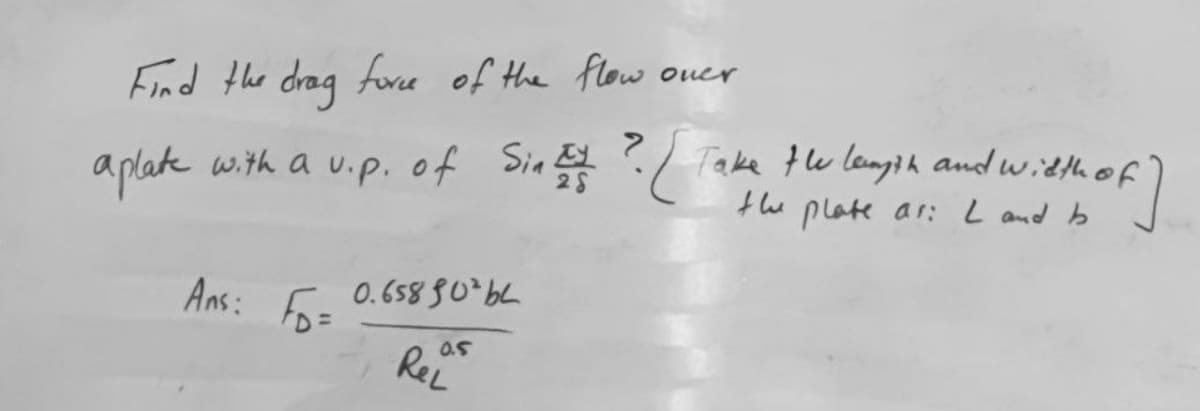 Find the drag force of the flow over
a plate with a v.p. of Sin πy/2δ ? [Take the length and width of
the plate as: L and b]
Ans: FD = 0.658 ρU²bL / ReL^0.5